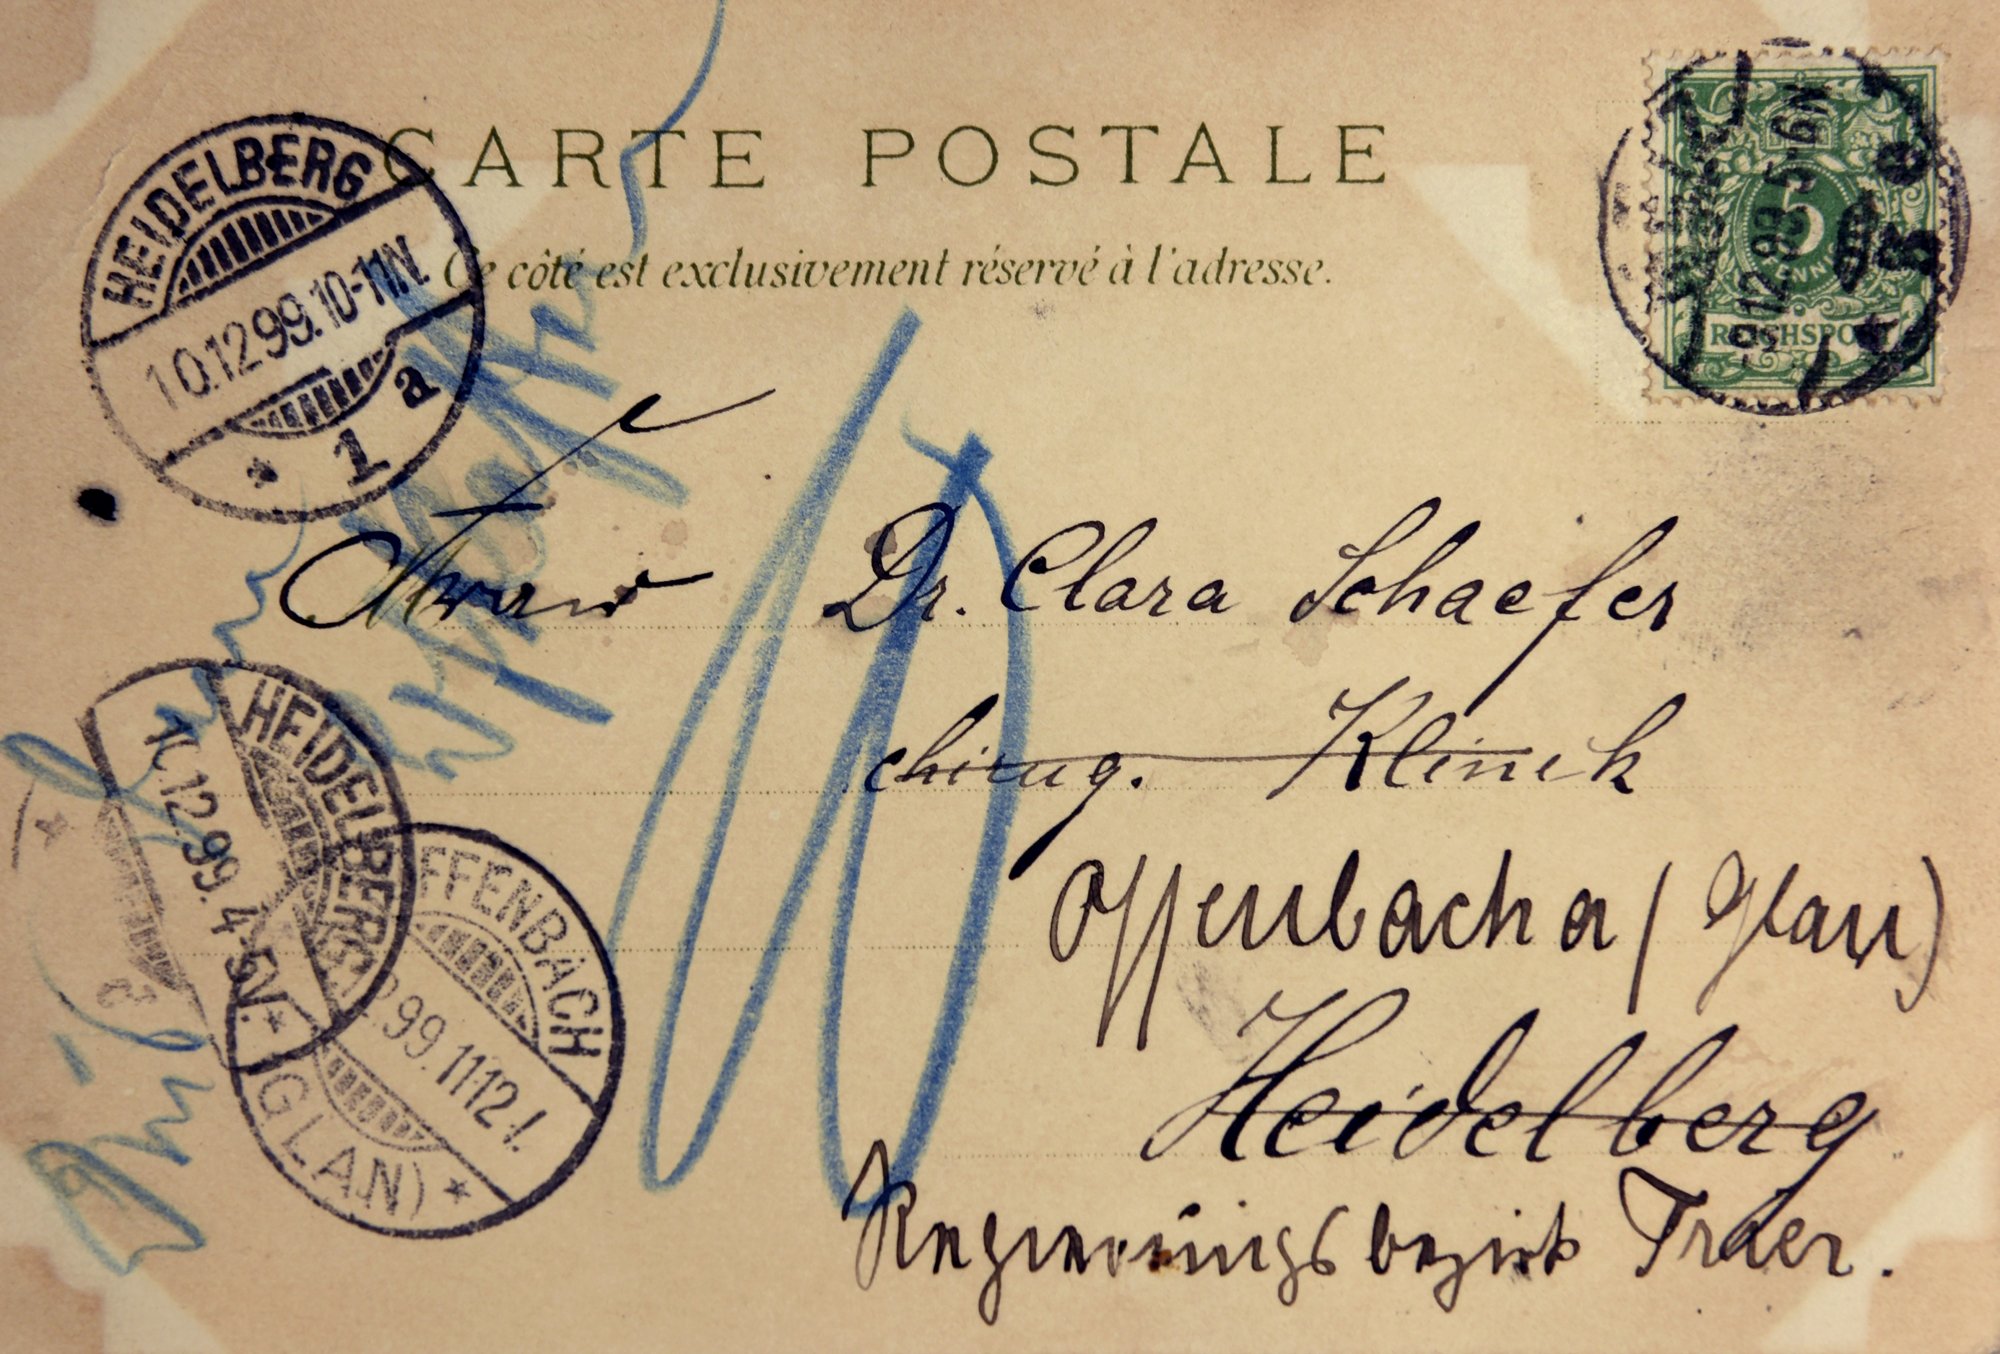 CARTE POSTALE
Ce côté est exclusivement réservé à l'adresse.
HEIDELBERG
10.12.99.10-11N.
* 1 a
9.12.99 5-6N
5
PFENNIG
REICHSPOST
10
Frau Dr. Clara Schaefer
chirug. Klinik
Offenbach a/ Glan)
Heidelberg
Regierungsbezirk Trier.
HEIDELBERG
12.99.4-5V.
*
OFFENBACH
.99.11-12
(GLAN) *